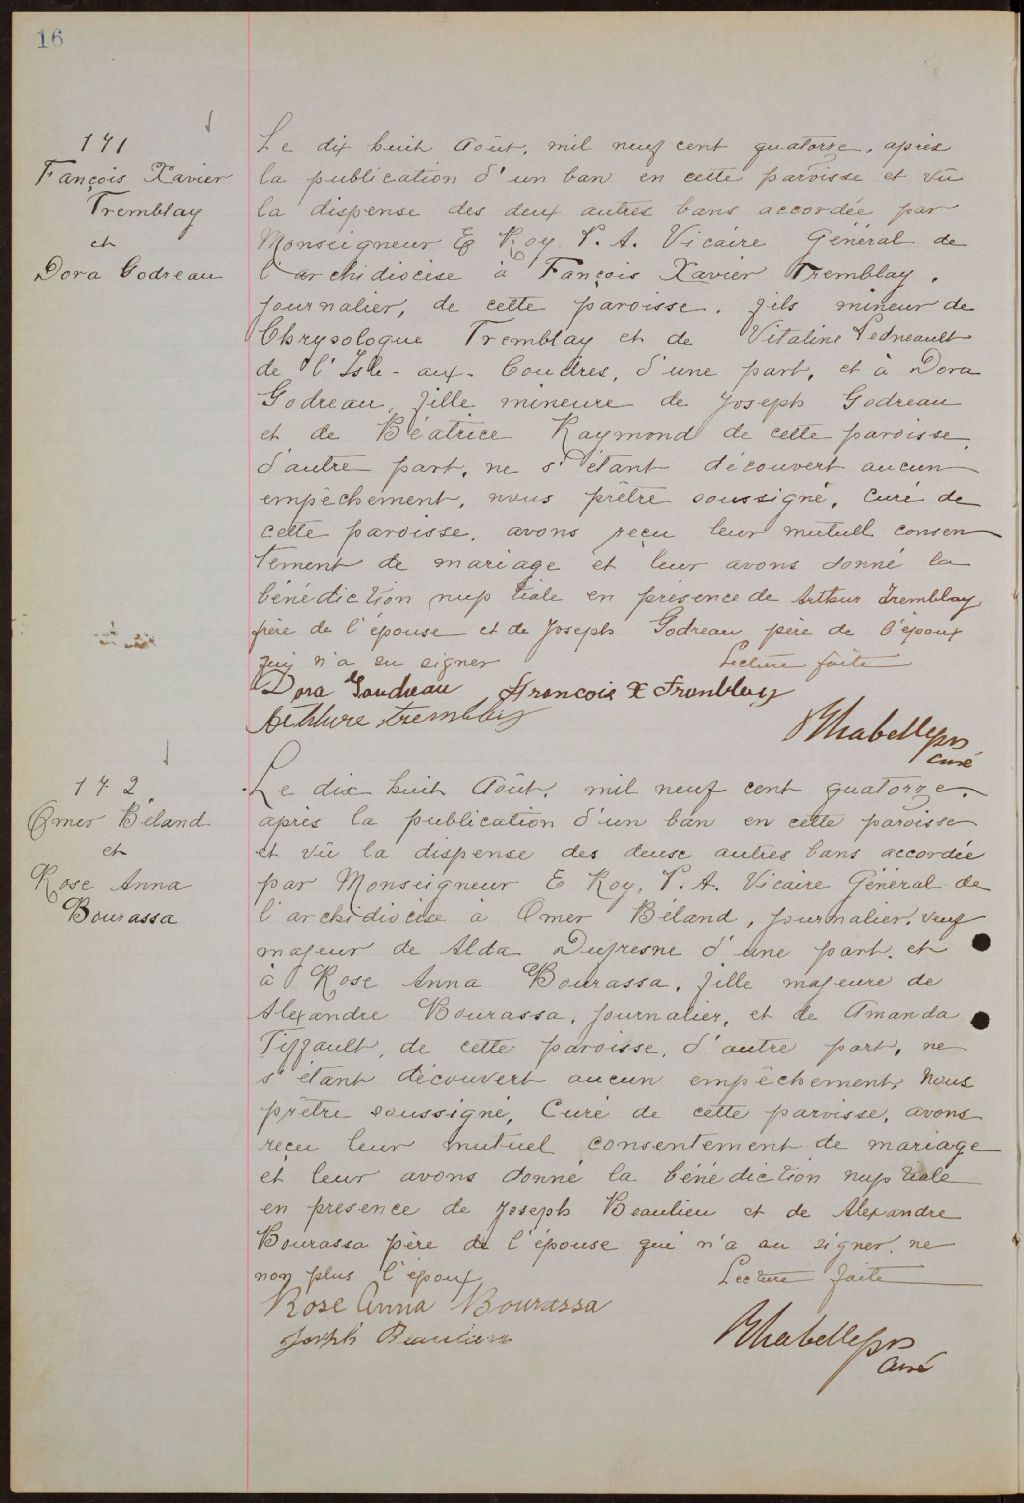 16
171
Fançois Xavier
Tremblay
et
Dora Godreau
Le dix huit Août, mil neuf cent quatorze, après
la publication d'un ban en cette paroisse et vû
la dispense des deux autres bans accordée par
Monseigneur E Roy. P. A. Vicaire Général de
l'archidiocèse à Fançois Xavier Tremblay,
journalier, de cette paroisse, fils mineur de
Chrysologue Tremblay et de Vitaline Pedneault
de l'Isle-aux-Coudres, d'une part, et à Dora
Godreau, fille mineure de Joseph Godreau
et de Béatrice Raymond de cette paroisse,
d'autre part, ne s'étant découvert aucun
empêchement, nous prêtre soussigné, curé de
cette paroisse, avons reçu leur mutuel consen
tement de mariage et leur avons donné la
bénédiction nuptiale en présence de Arthur Tremblay
frère de l'épouse et de Joseph Godreau père de l'époux
qui n'a su signer Lecture faite
Dora Goudreau Francois X Tremblay
Arthure Tremblay
curé
172
Omer Béland
et
Rose Anna
Bourassa
Le dix huit Août, mil neuf cent quatorze,
après la publication d'un ban en cette paroisse
et vû la dispense des deux autres bans accordée
par Monseigneur E Roy, P. A. Vicaire Général de
l'archidiocèse à Omer Béland, journalier, veuf
majeur de Alda Dufresne d'une part, et
à Rose Anna Bourassa, fille majeure de
Alexandre Bourassa, journalier, et de Amanda
Tiffault, de cette paroisse, d'autre part, ne
s'étant découvert aucun empêchement, nous
prêtre soussigné, Curé de cette paroisse, avons
reçu leur mutuel consentement de mariage
et leur avons donné la bénédiction nuptiale
en présence de Joseph Beaulieu et de Alexandre
Bourassa père de l'épouse qui n'a su signer, ne
non plus l'époux Lecture faite
Rose Anna Bourassa
Joseph Beaulieu
curé